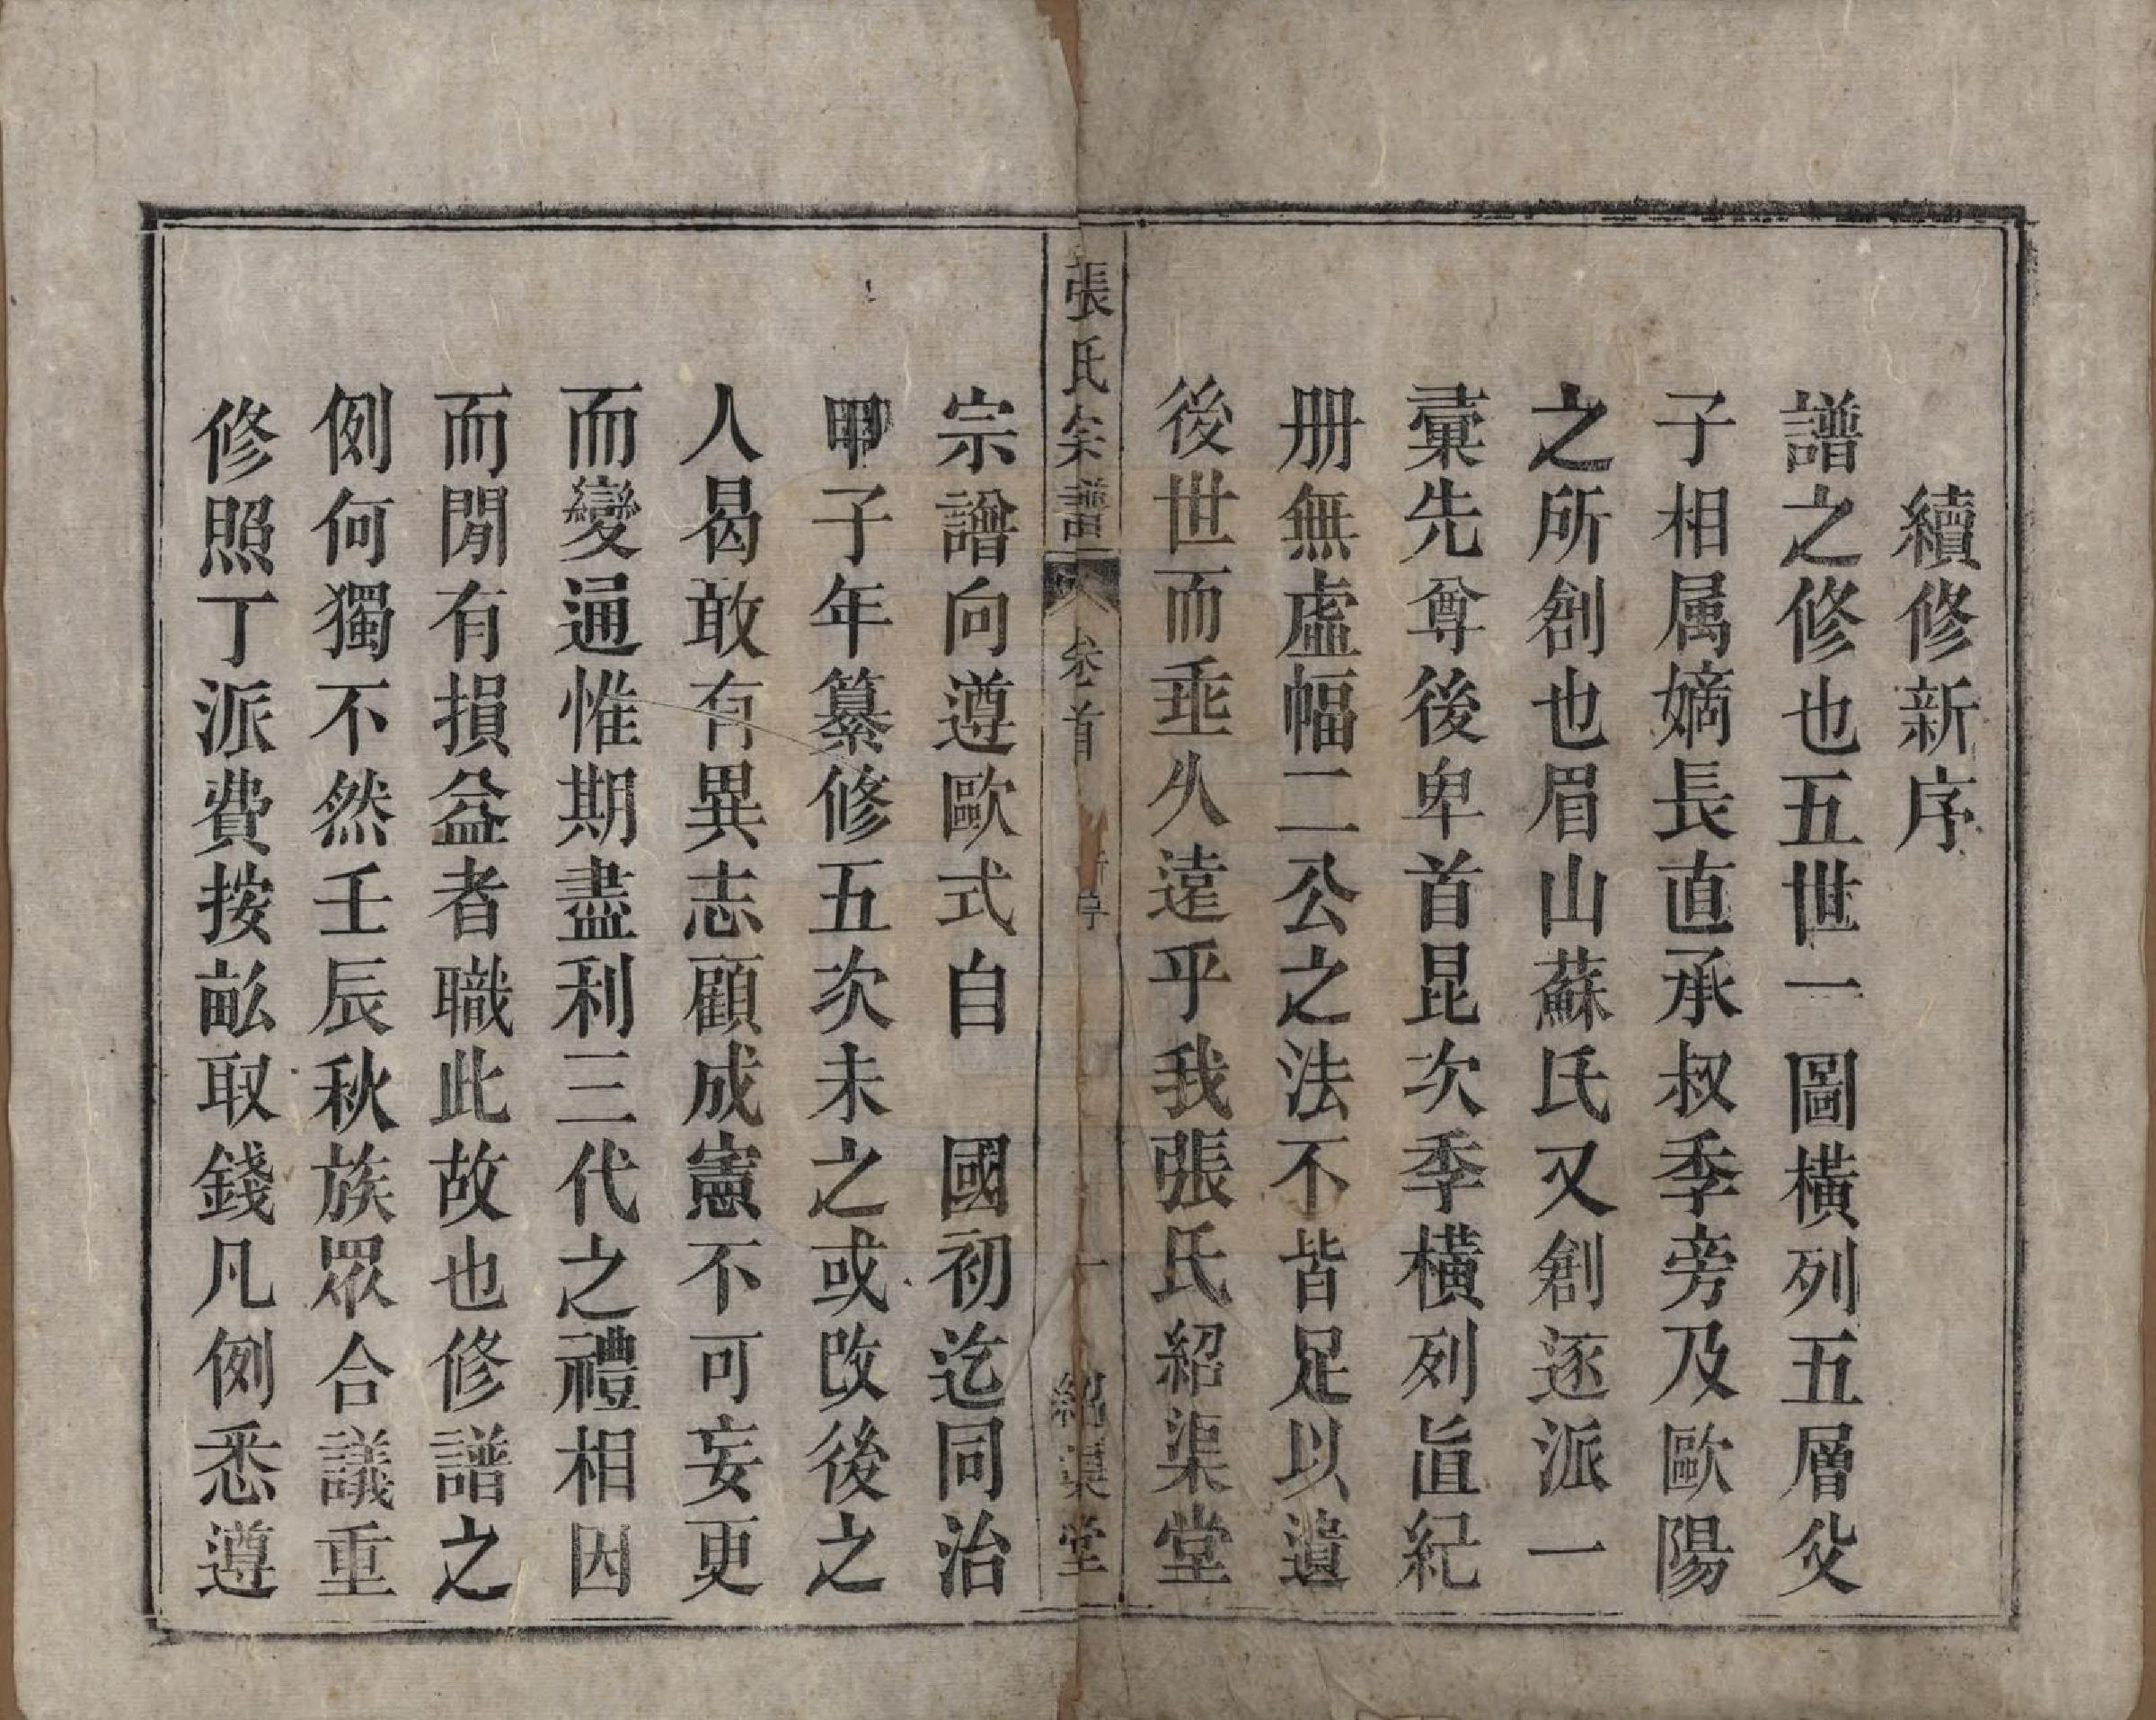 續修新序
譜之修也五世一圖橫列五層父
子相属嫡長直承叔季旁及歐陽
之所創也眉山蘇氏又創逐派一
彙先尊後卑首昆次季橫列直紀
册無虛幅二公之法不皆足以遺
後世而垂久遠乎我張氏紹渠堂
張氏宗譜 卷首 新序 一 紹渠堂
宗譜向遵歐式自 國初迄同治
甲子年纂修五次未之或改後之
人曷敢有異志顧成憲不可妄更
而變通惟期盡利三代之禮相因
而閒有損益者職此故也修譜之
例何獨不然壬辰秋族眾合議重
修照丁派費按畝取錢凡例悉遵